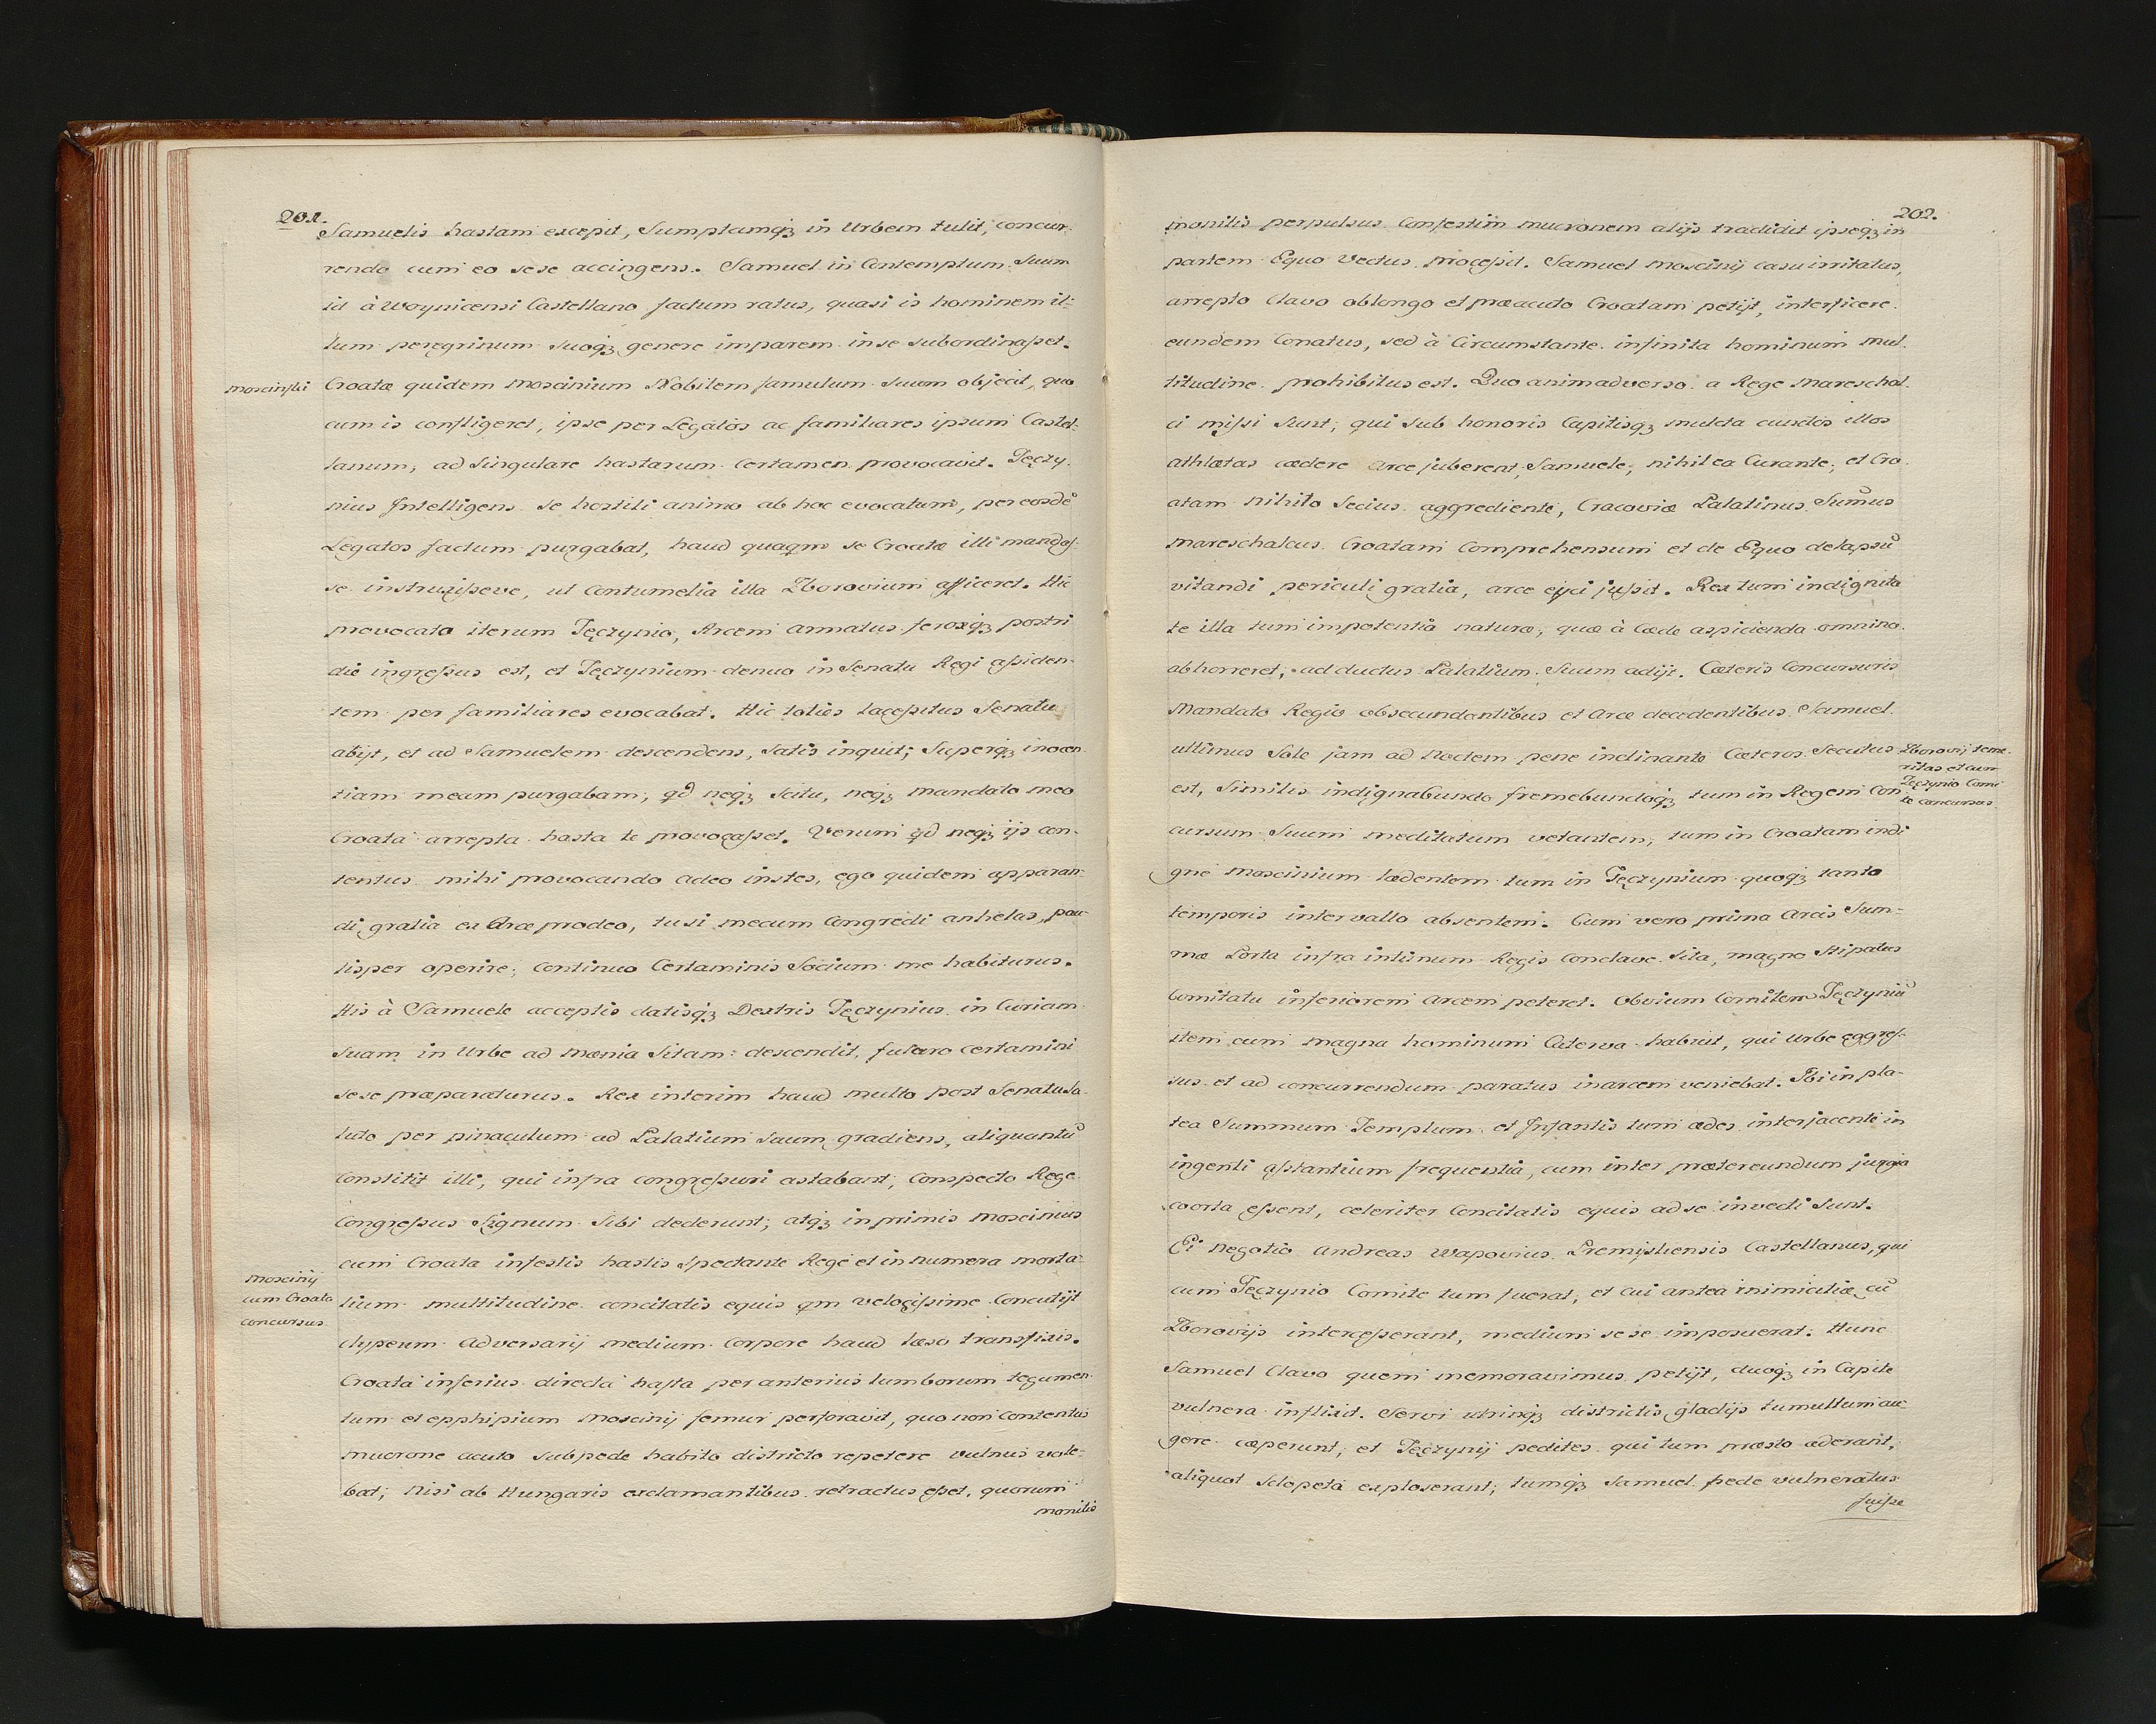 201.
Samuelis hastam excepit, Sumptamq₃ in Urbem tulit, concur-
rendo cum eo sese accingens. Samuel in Contemptum Suum
id à Woynicensi Castellano factum ratus, quasi is hominem il-
lum peregrinum Suoq₃ genere imparem in se subordinaſset.
Moscinſki
Croatæ quidem Moscinium Nobilem famulum Suum objecit, quo
cum is confligeret, ipse per Legatos ac familiares ipsum Castel-
lanum, ad Singulare hastarum Certamen provocavit. Tęczy-
nius Intelligens Se hostili animo ab hoc evocatum, per eosdē
Legatos factum purgabat, haud quaqm se Croatæ illi mandaſ-
se instruxiſseve, ut Contumelia illa Zborovium afficeret. Hic
provocato iterum Tęczynio, Arcem armatus feroxq₃ postri
die ingreſsus est, et Tęczynium denuo in Senatu Regi aſsiden-
tem per familiares evocabat. Hic toties laceſsitus Senatu
abijt, et ad Samuelem descendens, Satis inquit, Superq₃ inocen-
tiam meam purgabam, qd neq₃ Scitu, neq₃ mandato meo
Croata arrepta hasta te provocaſset. Verum qd neq₃ ijs con-
tentus mihi provocando adeo instes, ego quidem apparan-
di gratia ex Arce prodeo, tu si mecum Congredi anhelas, pau-
lisper operire, Continuo Certaminis Socium me habiturus.
His à Samuele acceptis datisq₃ Dextris Tęczynius in Curiam
Suam in Urbe ad mænia Sitam descendit, futuro certamini
sese præparaturus. Rex interim haud multo post Senatu Sa-
luto per pinaculum ad Palatium Suum gradiens, aliquantū
Constitit illi, qui infra congreſsuri astabant, Conspecto Rege
Congreſsus Signum Sibi dederunt, atq₃ inprimis Moscinius
cum Croata infestis hastis Spectante Rege et innumera morta-
Moscinij
cum Croata
concursus
lium multitudine concitatis equis qm velociſsime Concutijt
clypeum adversarij medium Corpore haud læso transfixis.
Croata inferius directa haſta per anterius lumborum tegumen-
tum et epphipium Moscinij femur perforavit, quo non Contentus
mucrone acuto sub pede habito districto repetere vulnus vole-
bat, Nisi ab Hungaris exclamantibus retractus eſset, quorum
monitis
202.
monitis perpulsus Confestim mucronem alijs tradidit ipseq₃ in
partem Equo Vectus proceſsit. Samuel Moscinij casu irritatus,
arrepto Clavo oblongo et præacuto Croatam petijt, interficere
eundem Conatus, sed à Circumstante infinita hominum mul-
titudine prohibitus est. Quo animadverso a Rege Mareschal-
ci miſsi Sunt, qui Sub honoris Capitisq₃ mulcta cunctos illos
athlætas cædere Arce juberent, Samuele, nihil ea Curante, et Cro-
atam nihilo Secius aggrediente, Cracoviæ Palatinus Sum̄us
Mareschalcus Croatam Comprehensum et de Equo delapsū
vitandi periculi gratia, arce ejici juſsit. Rex tum indignita
te illa tum impotentia naturæ, quæ à Cæde aspicienda omnino
abhorreret, adductus Palatium Suum adijt. Cæteris Concursuris
Mandato Regio obsecundantibus et Arce decedentibus Samuel
ultimus Sole jam ad Noctem pene inclinante Cæteros Secutus
Zborovij teme-
ritas et cum
Tęczynio Comi-
te concursus
est, Similis indignabundo fremebundoq₃ tum in Regem Con-
cursum Suum meditatum vetantem, tum in Croatam indi-
gne Moscinium lædentem tum in Tęczynium quoq₃ tanto
temporis intervallo absentem. Cum vero prima Arcis Sum-
mæ Porta infra intimum Regis Conclave Sita, magno Stipatus
Comitatu inferiorem Arcem peteret. Obvium Comitem Tęczyniū
item cum magna hominum Caterva habuit, qui Urbe eggreſ-
sus et ad concurrendum paratus in arcem veniebat. Ibi in pla-
tea Summum Templum et Infantis tum ædes interjacenti in
ingenti aſstantium frequentia, cum inter prætereundum jurgia
coorta eſsent, celeriter Concitatis equis ad se invecti Sunt.
Ei negotio Andreas Wapovius Premiſliensis Castellanus, qui
cum Tęczynio Comite tum fuerat, et cui antea inimicitiæ cū
Zborovijs interceſserant, medium sese imposuerat. Hunc
Samuel Clavo quem memoravimus petijt, duoq₃ in Capite
vulnera inflixit. Servi utrinq₃ districtis gladijs tumultum au-
gere cæperunt, et Tęczynij pedites qui tum præsto aderant,
aliquot Sclopeta exploserant, tumq₃ Samuel pede vulneratus
fuiſse